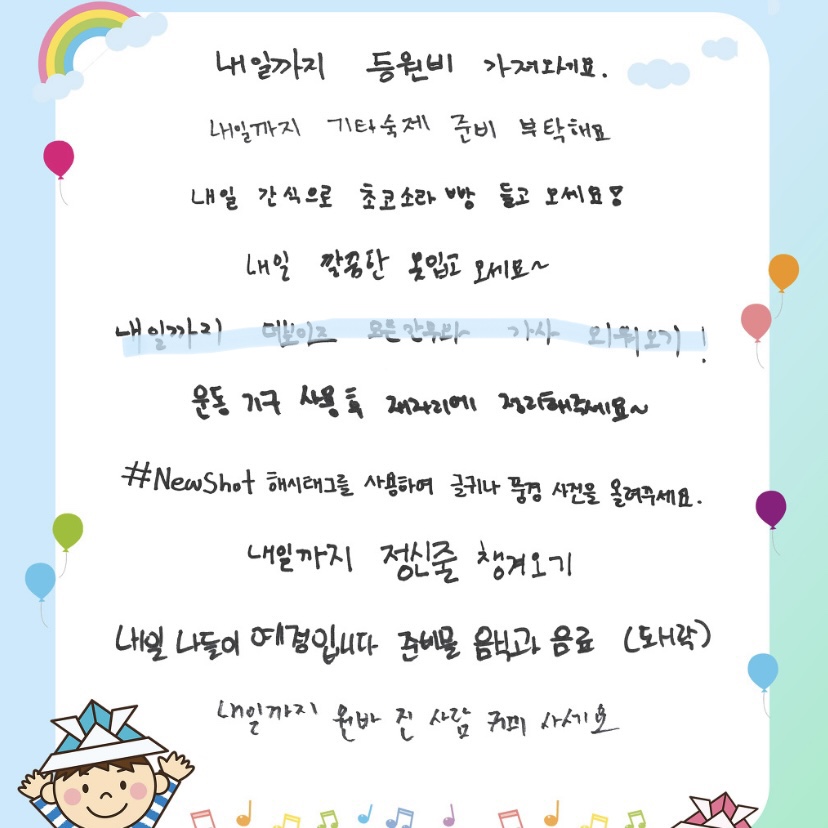 내일까지 등원비 가져와세요.
내일까지 기타숙제 준비 부탁해요
내일 간식으로 초코소라빵 들고 오세요!
내일 깔끔한 옷입고 오세요~
내일까지 더보이즈 모든 안무와 가사 외워오기!
운동 기구 사용 후 제자리에 정리해주세요~
#NewShot 해시태그를 사용하여 글귀나 풍경 사진을 올려주세요.
내일까지 정신줄 챙겨오기
내일 나들이 예정입니다 준비물 음식과 음료 (도시락)
내일까지 원바 진 사람 커피 사세요